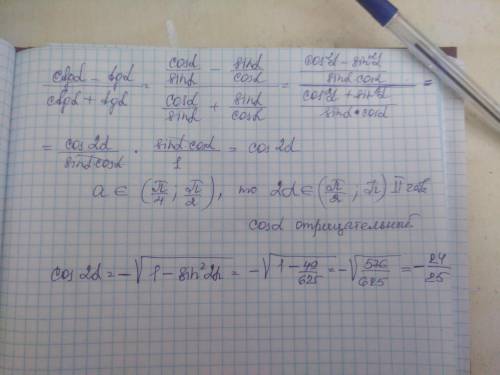 (ctgα - tgα)/(ctgα + tgα) = (cosα/sinα - sinα/cosα)/(cosα/sinα + sinα/cosα) = ((cos²α - sin²α)/(sinα cosα))/((cos²α + sin²α)/(sinα • cosα)) =
= cos2α/(sinα cosα) · (sinα cosα)/1 = cos2α
a ∈ (π/4; π/2), то 2α ∈ (π/2; π) II четв
cosα отрицательный
cos2α = -√(1 - sin²2α) = -√(1 - 49/625) = -√(576/625) = -24/25